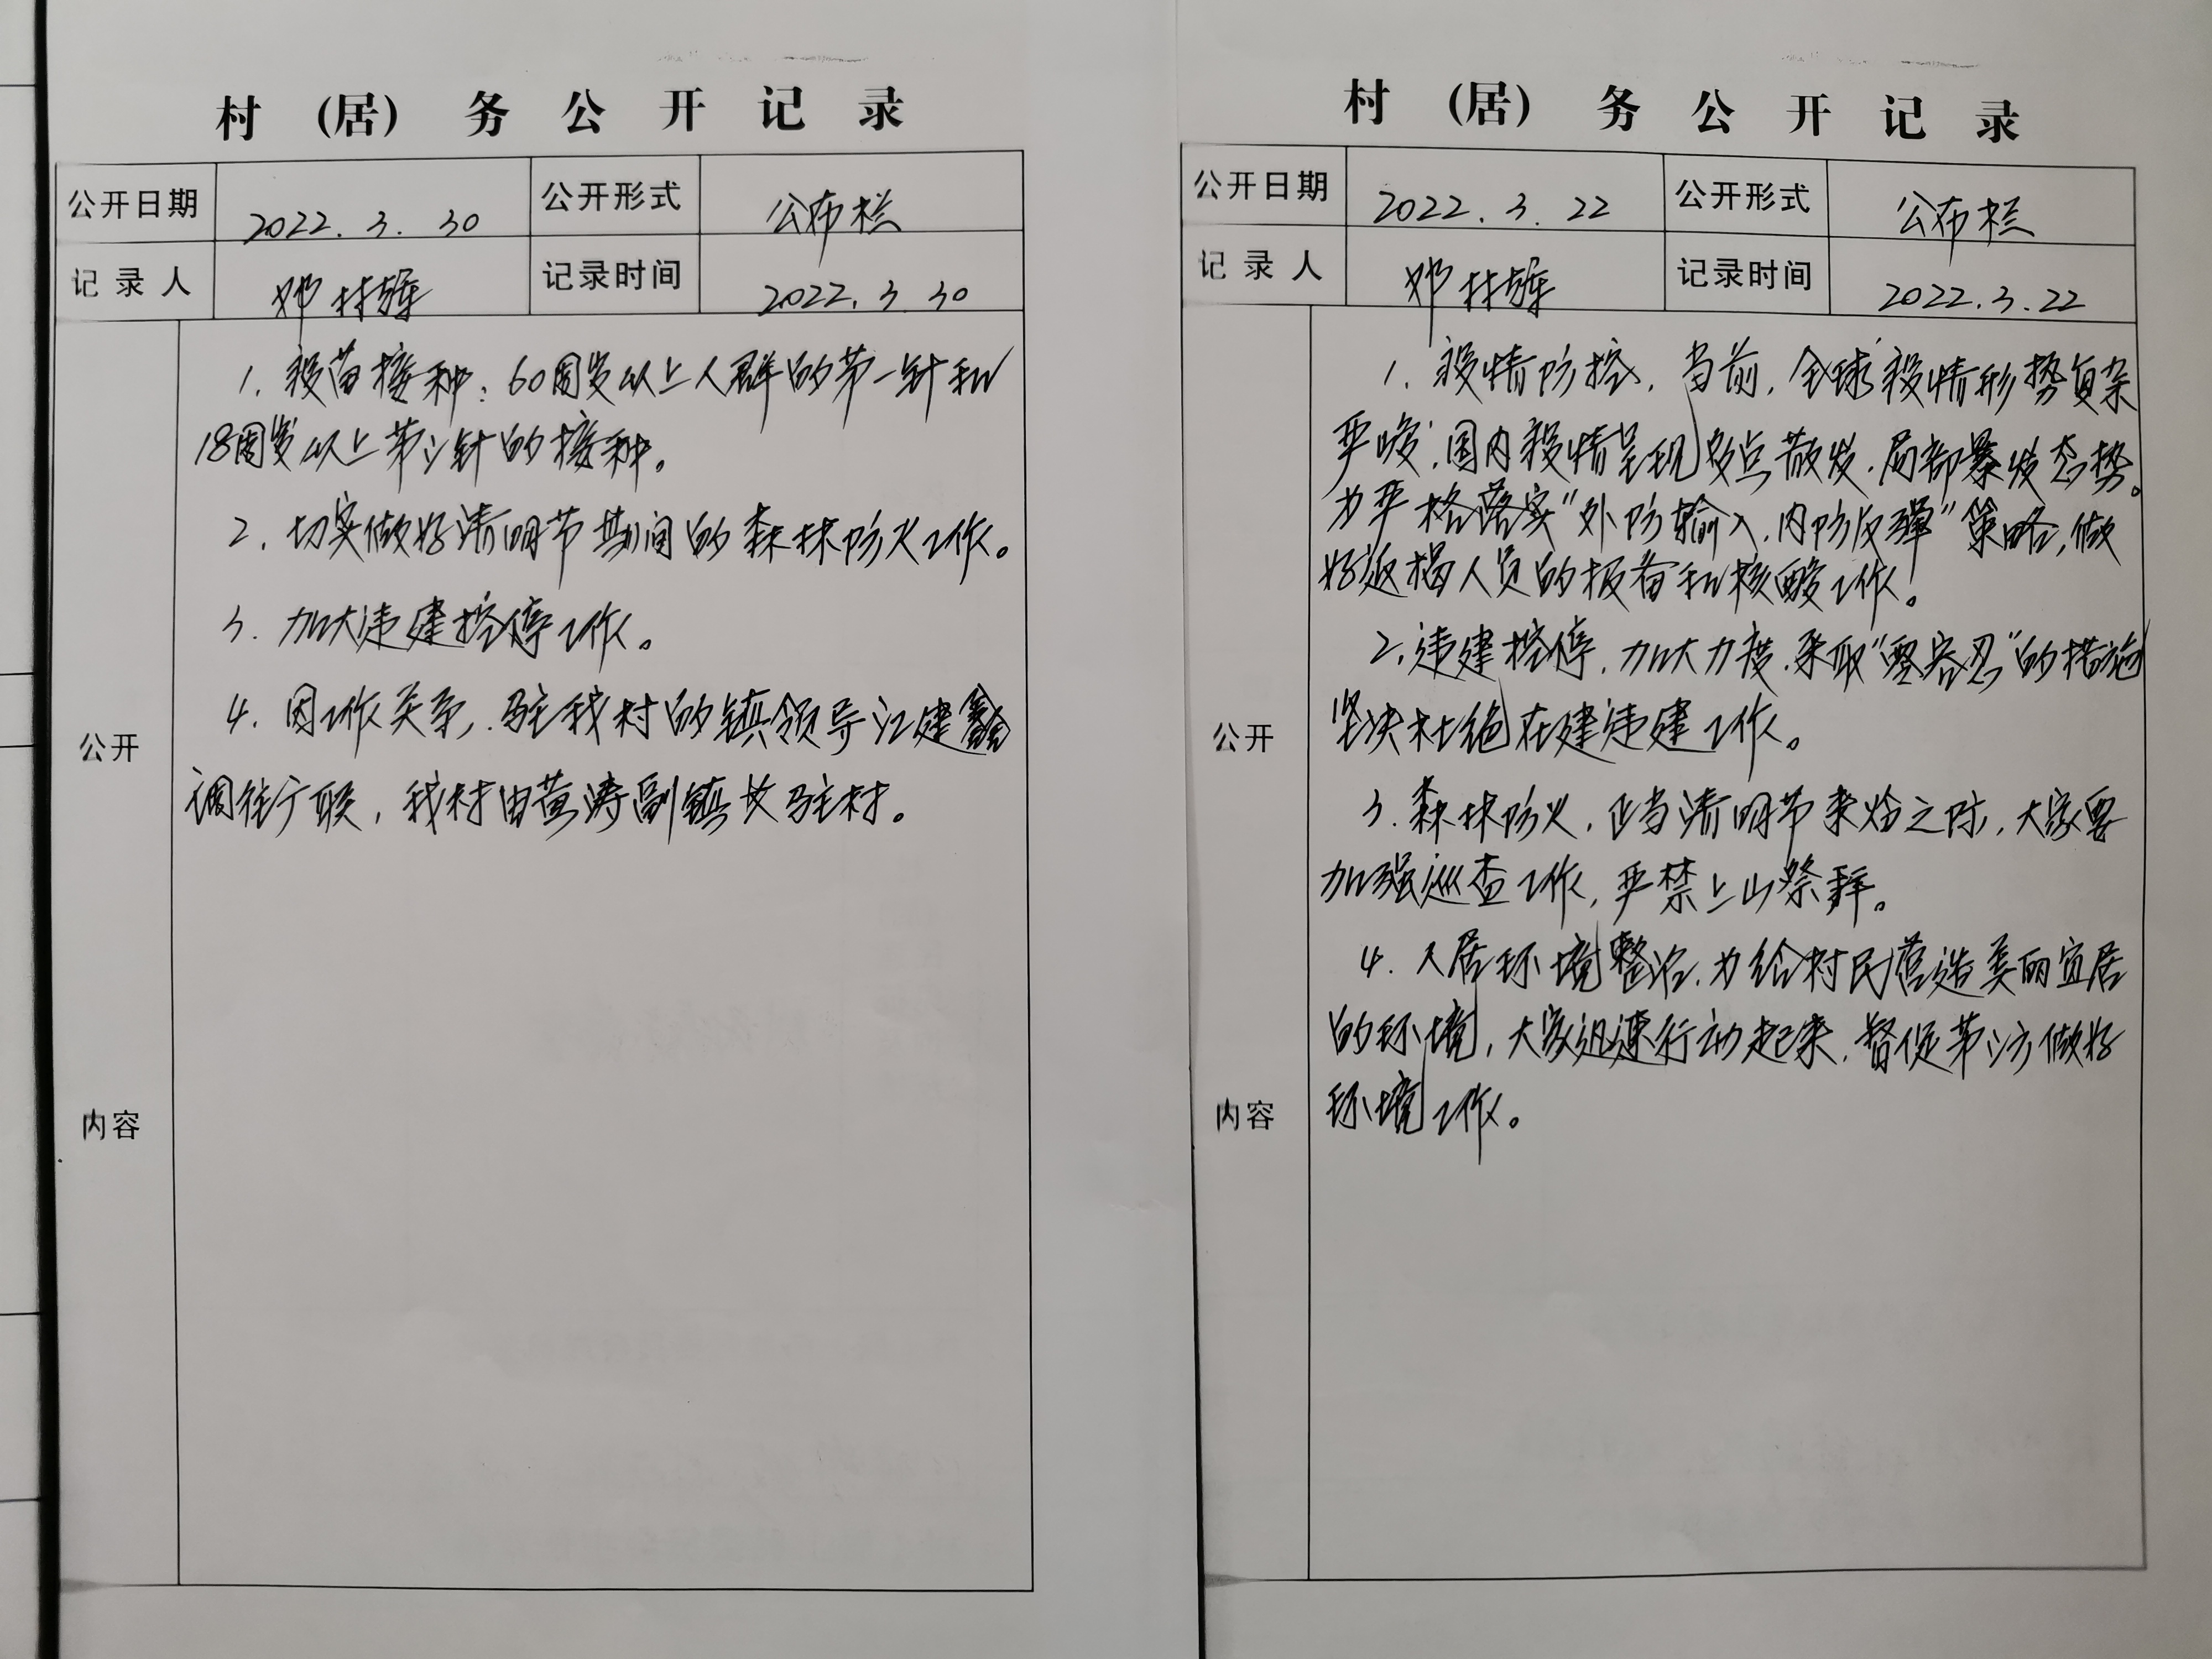 村 (居) 务 公 开 记 录
公开日期 2022.3.30 公开形式 公布栏
记 录 人 邓林 记录时间 2022.3.30
公开
内容
1. 疫苗接种：60周岁以上人群的第一针和
18周岁以上第三针的接种。
2. 切实做好清明节期间的森林防火工作。
3. 加大违建控停工作。
4. 因工作关系，驻我村的镇领导江建
调往广联，我村由黄涛副镇长驻村。
村 (居) 务 公 开 记 录
公开日期 2022.3.22 公开形式 公布栏
记 录 人 邓林 记录时间 2022.3.22
公开
内容
1. 疫情防控，当前，全球疫情形势复杂
严峻，国内疫情呈现多点散发，局部暴发态势。
为严格落实“外防输入，内防反弹”策略，做
好返揭人员的报备和核酸工作。
2. 违建控停，加大力度，采取“零容忍”的措施
坚决杜绝在建违建工作。
3. 森林防火，正当清明节来临之际，大家要
加强巡查工作，严禁上山祭拜。
4. 人居环境整治，为给村民营造美丽宜居
的环境，大家迅速行动起来，督促第三方做好
环境工作。